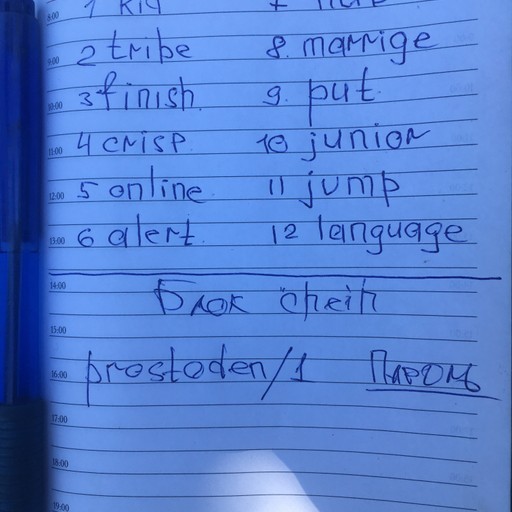 8:00 1 7
9:00 2 tribe 8. marrige
10:00 3 finish. 9. put
11:00 4 crisp 10 junior
12:00 5 online 11 jump
13:00 6 alert. 12 language
14:00 Блок cheih
15:00
16:00 prostoden/1 Пароль
17:00
18:00
19:00